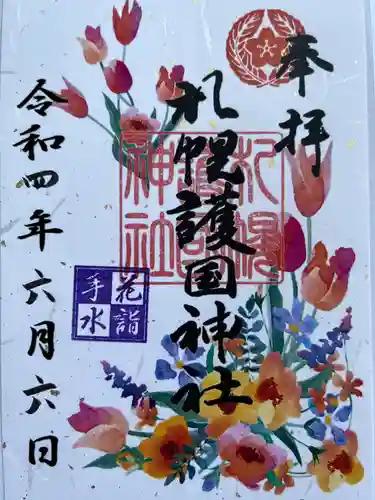 奉拝
札幌護国神社
札幌
護国
神社
花詣
手水
令和四年六月六日